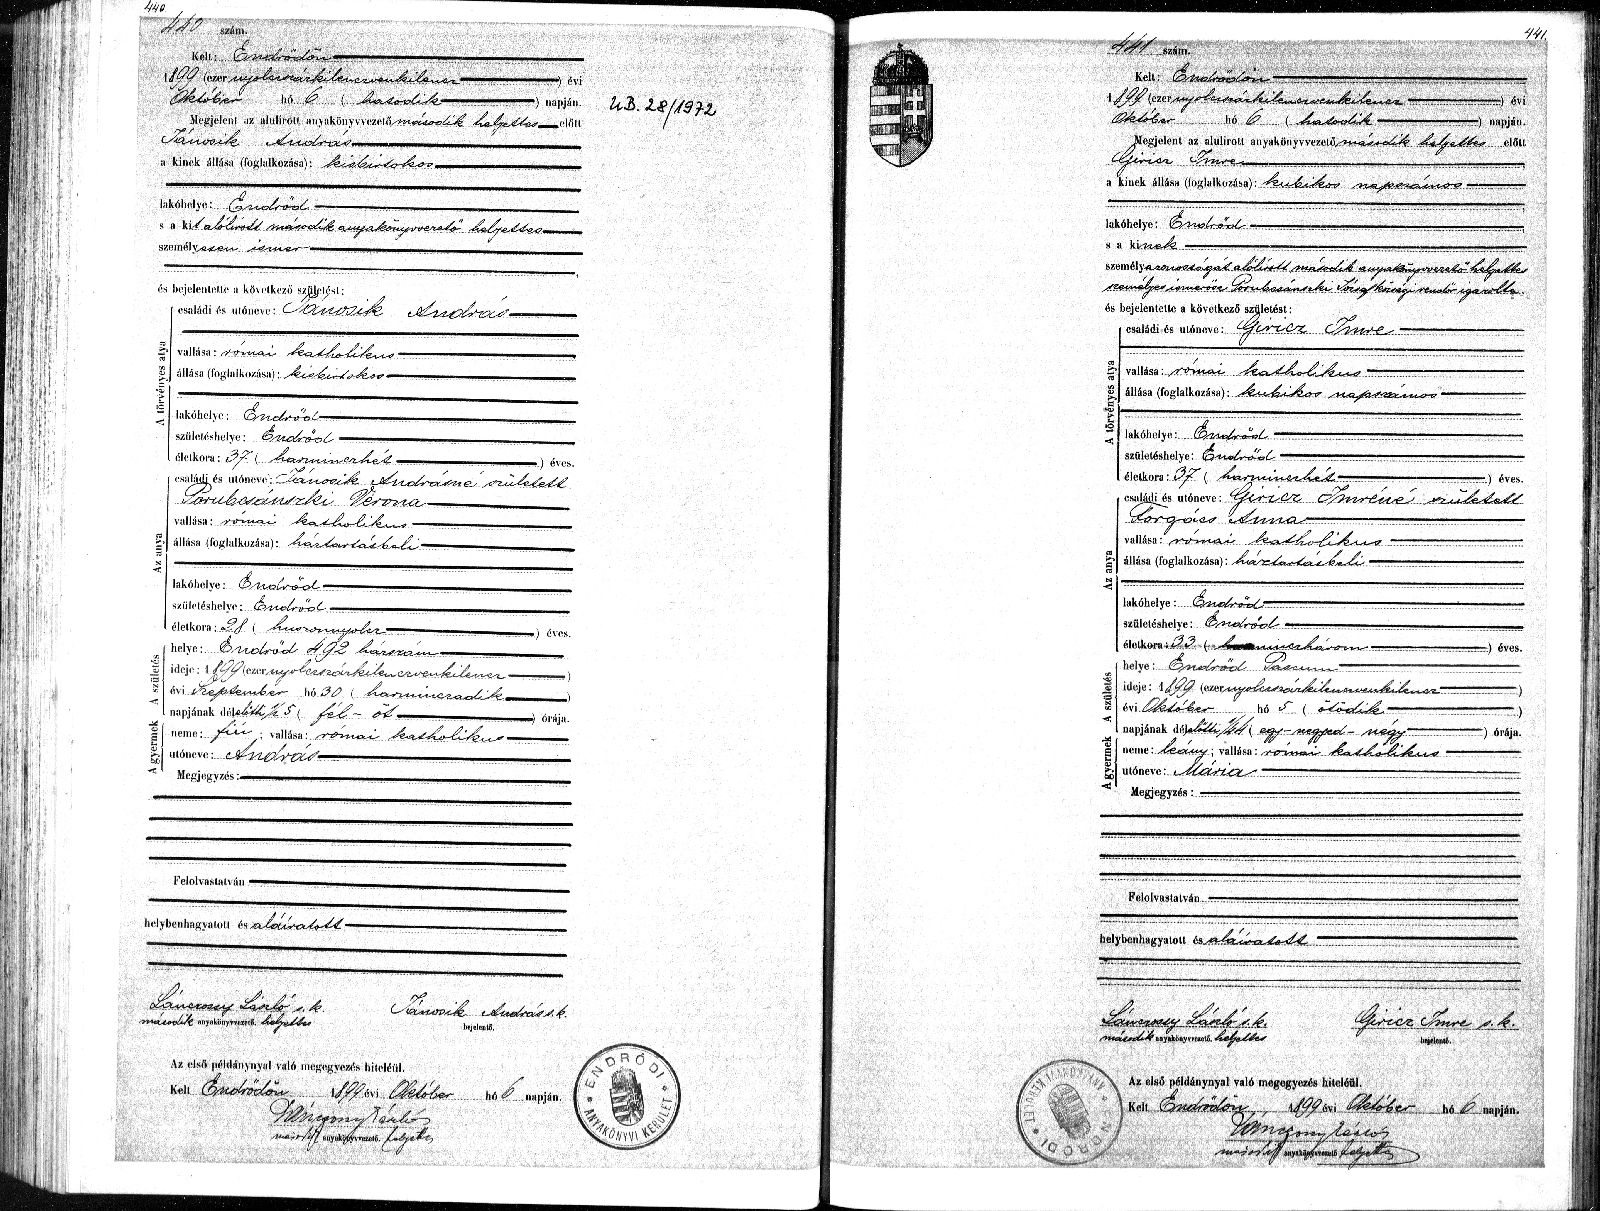 440
440 szám.
Kelt: Endrődön
1899 (ezernyolcszázkilenczvenkilencz) évi
Október hó 6 (hatodik) napján.
Megjelent az alulirott anyakönyvvezető második helyettes előtt
Jánosik András
a kinek állása (foglalkozása): kisbirtokos
lakóhelye: Endrőd
s a kit alólirott második anyakönyvvezető helyettes
személyesen ismer
és bejelentette a következő születést:
A törvényes atya
családi és utóneve: Jánosik András
vallása: római katholikus
állása (foglalkozása): kisbirtokos
lakóhelye: Endrőd
születéshelye: Endrőd
életkora: 37 (harminczhét) éves.
Az anya
családi és utóneve: Jánosik Andrásné született
Porubcsánszki Verona
vallása: római katholikus
állása (foglalkozása): háztartásbeli
lakóhelye: Endrőd
születéshelye: Endrőd
életkora: 28 (huszonnyolcz) éves.
A születés
helye: Endrőd 492 házszám
ideje: 1899 (ezernyolczszázkilenczvenkilencz)
évi Szeptember hó 30 (harminczadik)
napjának délelőtti ½ 5 (fél-öt) órája.
A gyermek
neme: fiú; vallása: római katholikus
utóneve: András
Megjegyzés:
Felolvastatván
helybenhagyatott és aláiratott
Lánczossy László s.k. Jánosik András s.k.
második anyakönyvvezető helyettes bejelentő.
Az első példánynyal való megegyezés hiteléül.
Kelt Endrődön 1899 évi Október hó 6 napján.
második anyakönyvvezető helyettes
ENDRŐDI ANYAKÖNYVI KERÜLET
UB. 28/1972
441
441 szám.
Kelt: Endrődön
1899 (ezernyolczszázkilenczvenkilencz) évi
Október hó 6 (hatodik) napján.
Megjelent az alulirott anyakönyvvezető második helyettes előtt
Giricz Imre
a kinek állása (foglalkozása): kubikos napszámos
lakóhelye: Endrőd
s a kinek
személyazonosságát alólirott második anyakönyvvezető helyettes
személyes ismerőse Porubcsánszki József községi rendőr igazolta
és bejelentette a következő születést:
A törvényes atya
családi és utóneve: Giricz Imre
vallása: római katholikus
állása (foglalkozása): kubikos napszámos
lakóhelye: Endrőd
születéshelye: Endrőd
életkora: 37 (harminczhét) éves.
Az anya
családi és utóneve: Giricz Imréné született
Forgács Anna
vallása: római katholikus
állása (foglalkozása): háztartásbeli
lakóhelye: Endrőd
születéshelye: Endrőd
életkora: 33 (harminczhárom) éves.
A születés
helye: Endrőd
ideje: 1899 (ezernyolczszázkilenczvenkilencz)
évi Október hó 5 (ötödik)
napjának délelőtti ¼4 (egy-negyed-négy) órája.
A gyermek
neme: leány; vallása: római katholikus
utóneve: Mária
Megjegyzés:
Felolvastatván
helybenhagyatott és aláiratott
Lánczossy László s.k. Giricz Imre s.k.
második anyakönyvvezető helyettes bejelentő.
Az első példánynyal való megegyezés hiteléül.
Kelt Endrődön 1899 évi Október hó 6 napján.
második anyakönyvvezető helyettes
ENDRŐDI ANYAKÖNYVI KERÜLET